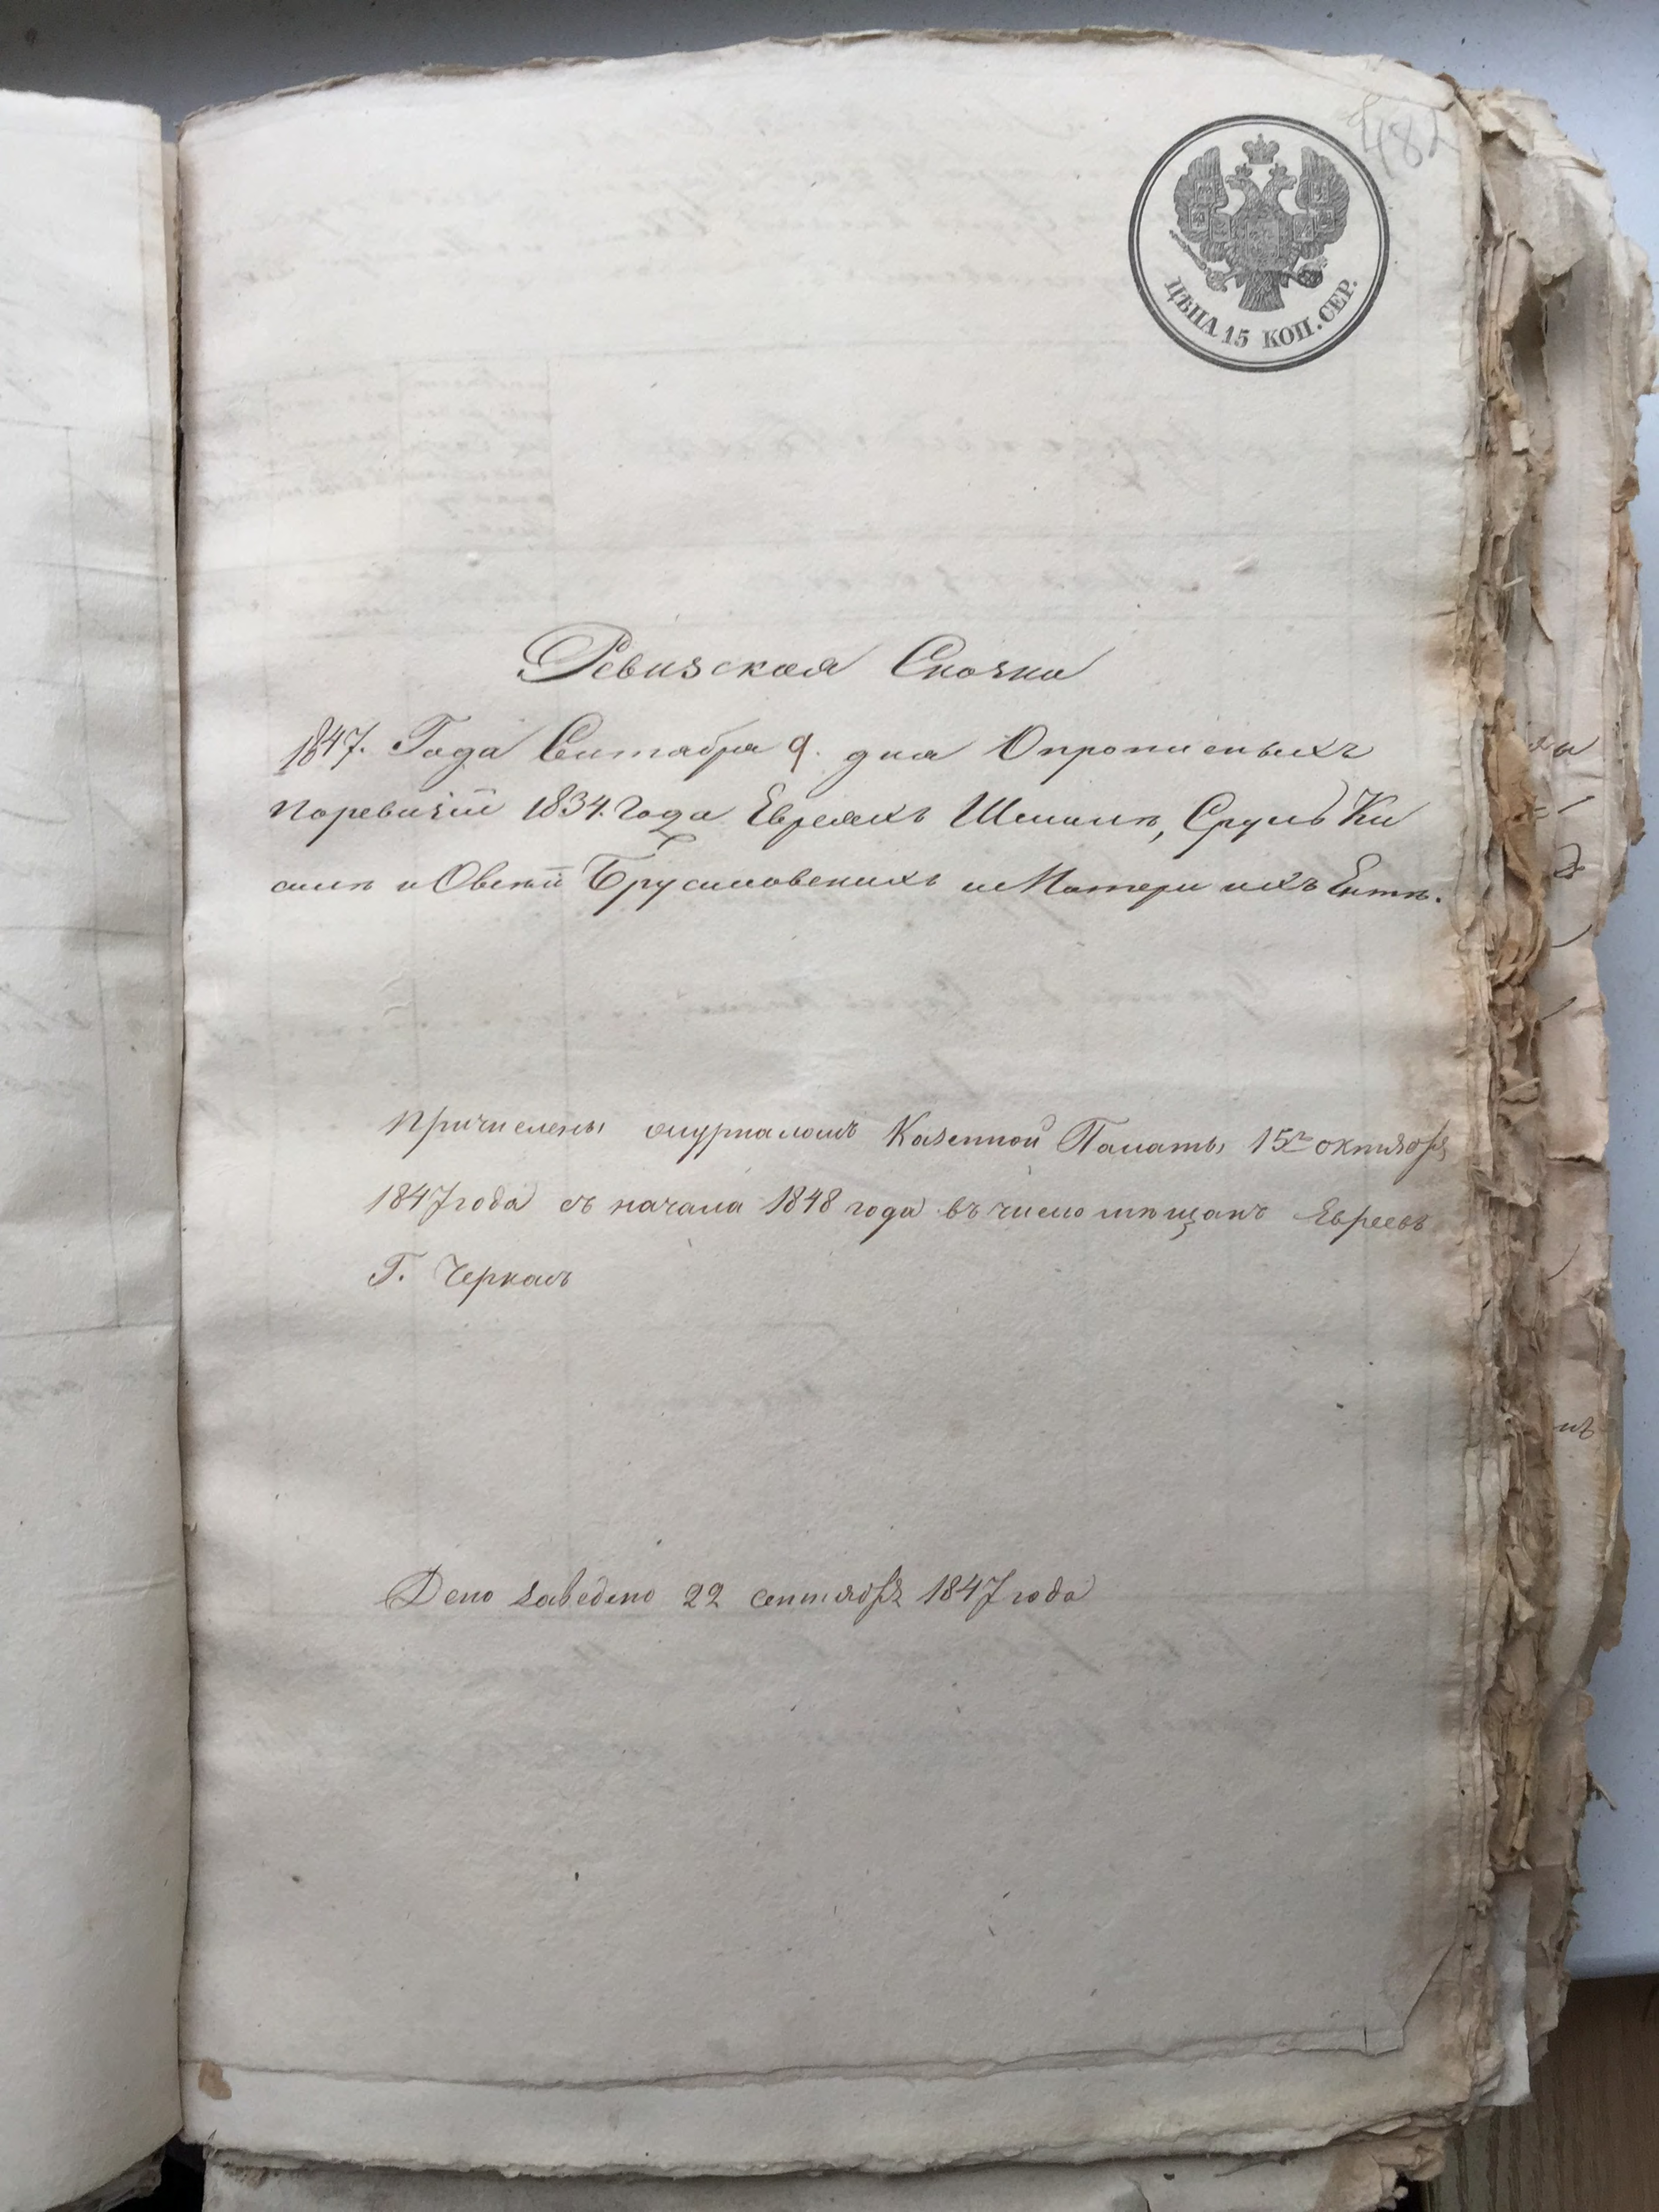 482
ЦѢНА 15 КОП. СЕР.
Ревизская Сказка
1847. Года Сентабра 9. дна Опрописныхъ
поревизіи 1834. Года Евреяхъ Шмилѣ, Сруль Ки
силѣ и Овсѣй Брусиловскихъ и Матери ихъ Ентѣ.
Причислены журналомъ Казенной Палаты 15го октября
1847 года съ начала 1848 года въ число мѣщанъ Евреевъ
Г. Черкасъ
Дело заведено 22 сентября 1847 года